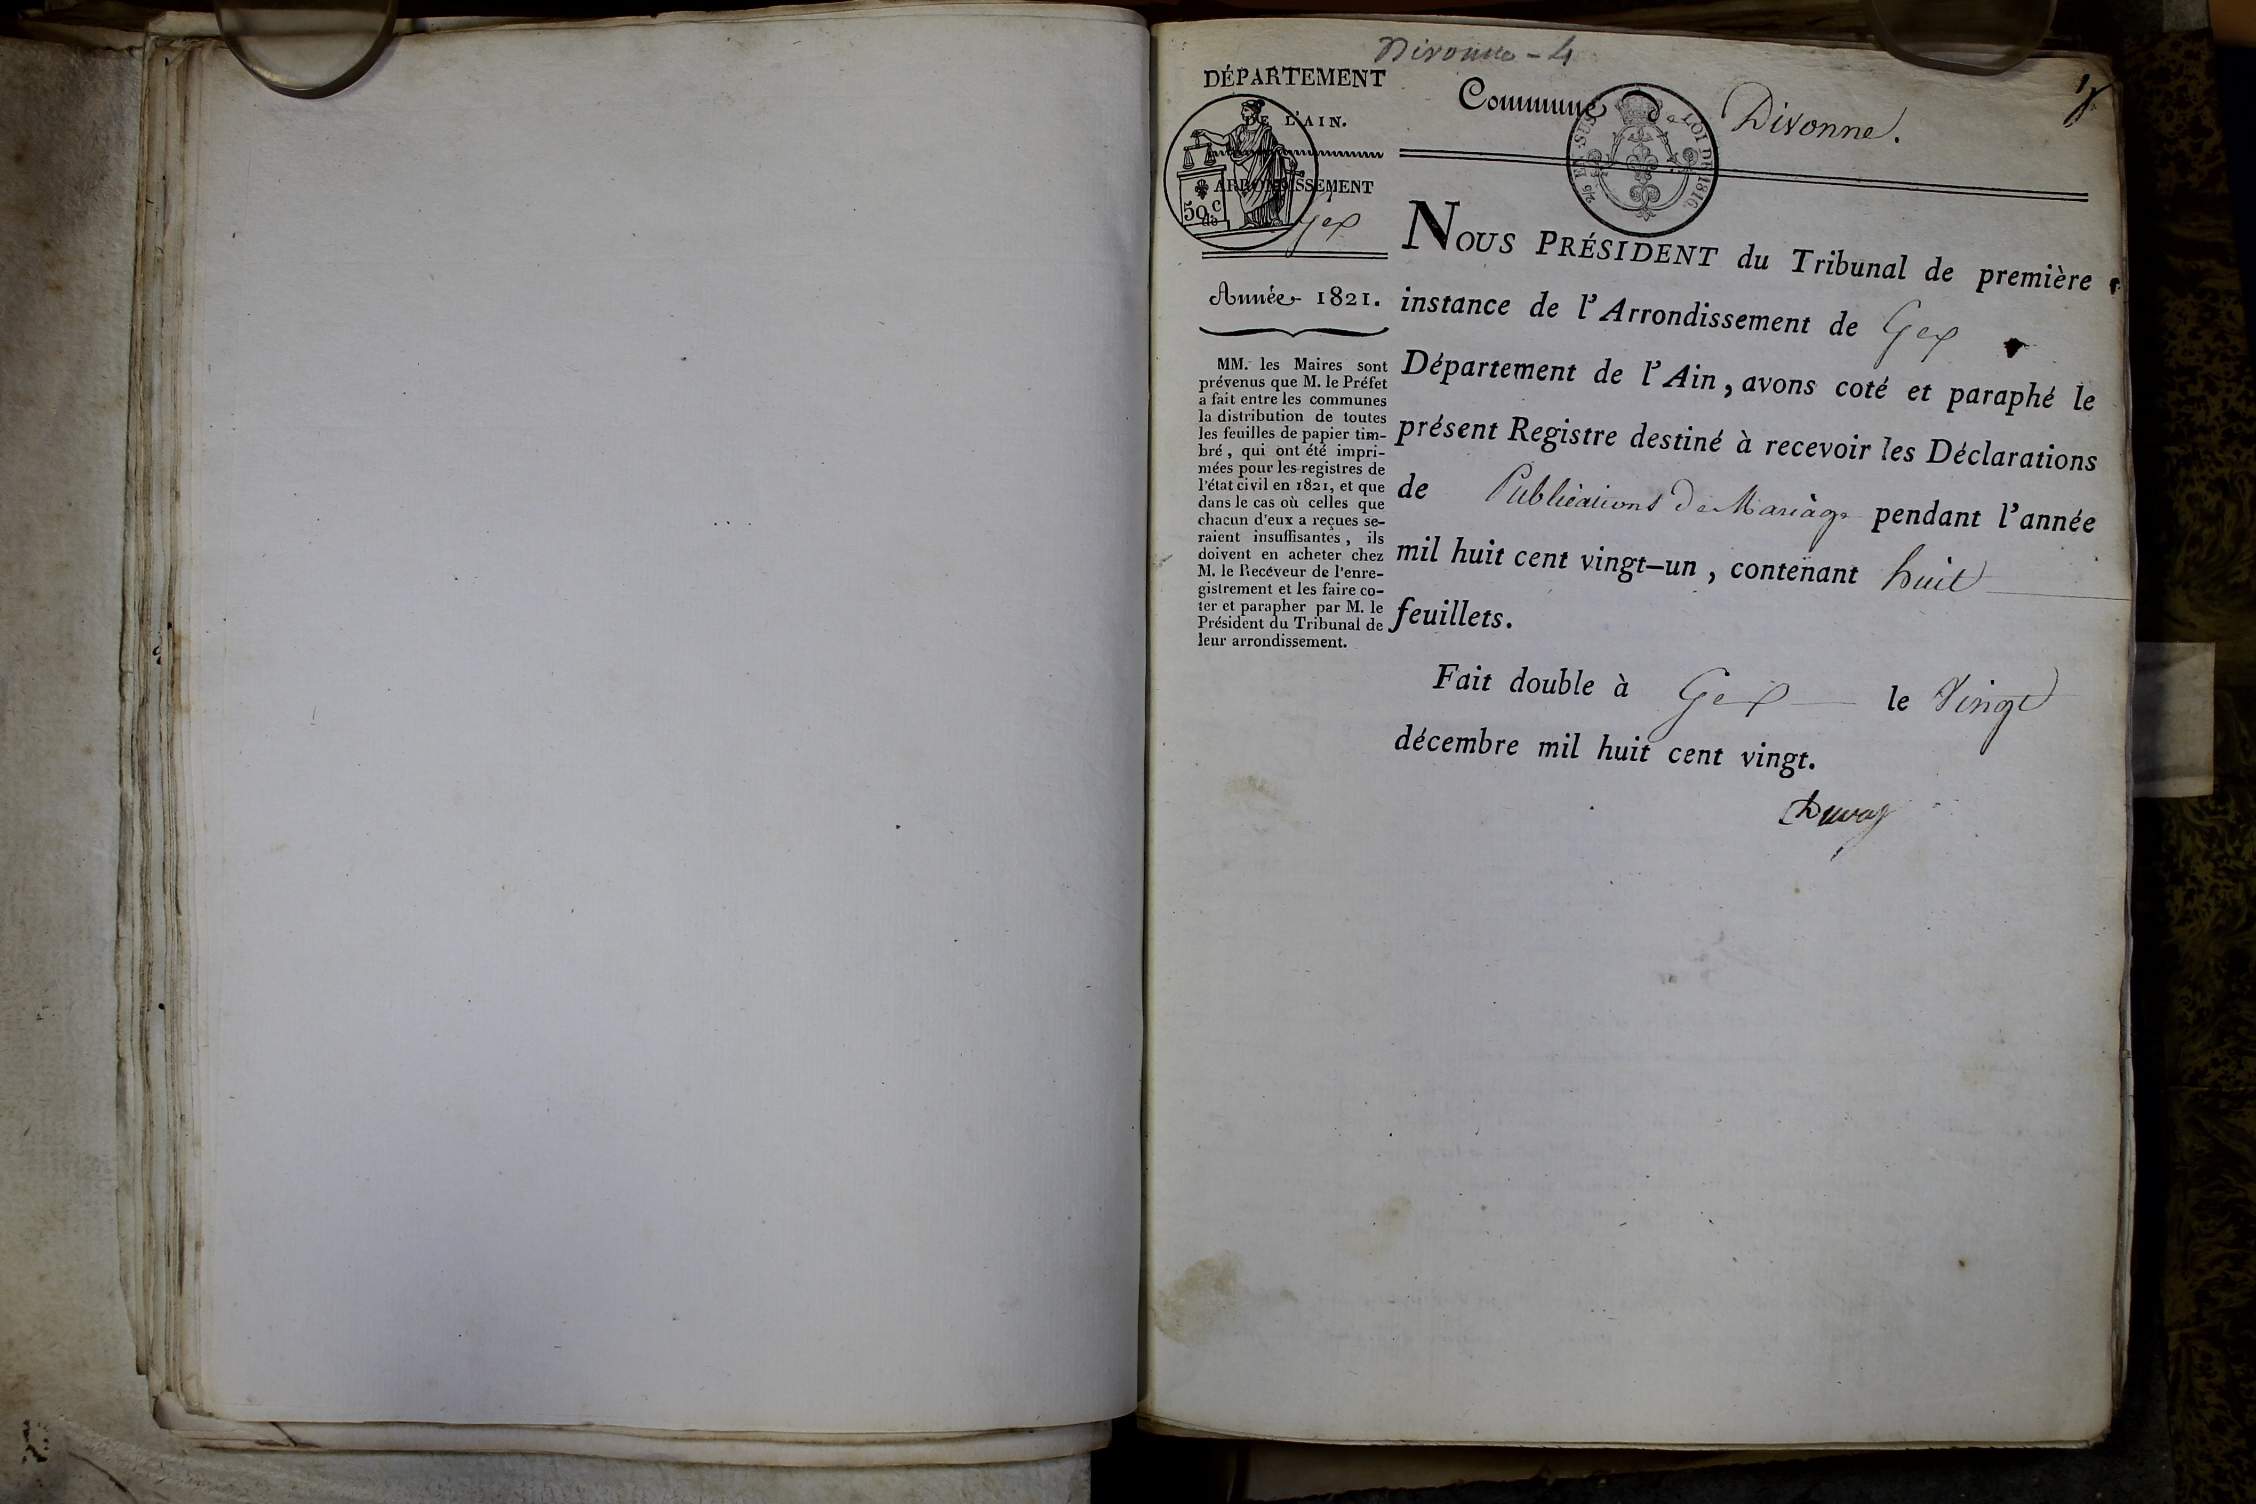 Divonne - 4
1
DÉPARTEMENT
DE L'AIN.
ARRONDISSEMENT
de Gex
50 c
Année 1821.
MM. les Maires sont
prévenus que M. le Préfet
a fait entre les communes
la distribution de toutes
les feuilles de papier tim-
bré, qui ont été impri-
mées pour les registres de
l'état civil en 1821, et que
dans le cas où celles que
chacun d'eux a reçues se-
raient insuffisantes, ils
doivent en acheter chez
M. le Recéveur de l'enre-
gistrement et les faire co-
ter et parapher par M. le
Président du Tribunal de
leur arrondissement.
Commune de Divonne.
EN SUS LOI DE 1816.
NOUS PRÉSIDENT du Tribunal de première
instance de l'Arrondissement de Gex
Département de l'Ain, avons coté et paraphé le
présent Registre destiné à recevoir les Déclarations
de Publications de Mariage pendant l'année
mil huit cent vingt-un, contenant huit
feuillets.
Fait double à Gex le Vingt
décembre mil huit cent vingt.